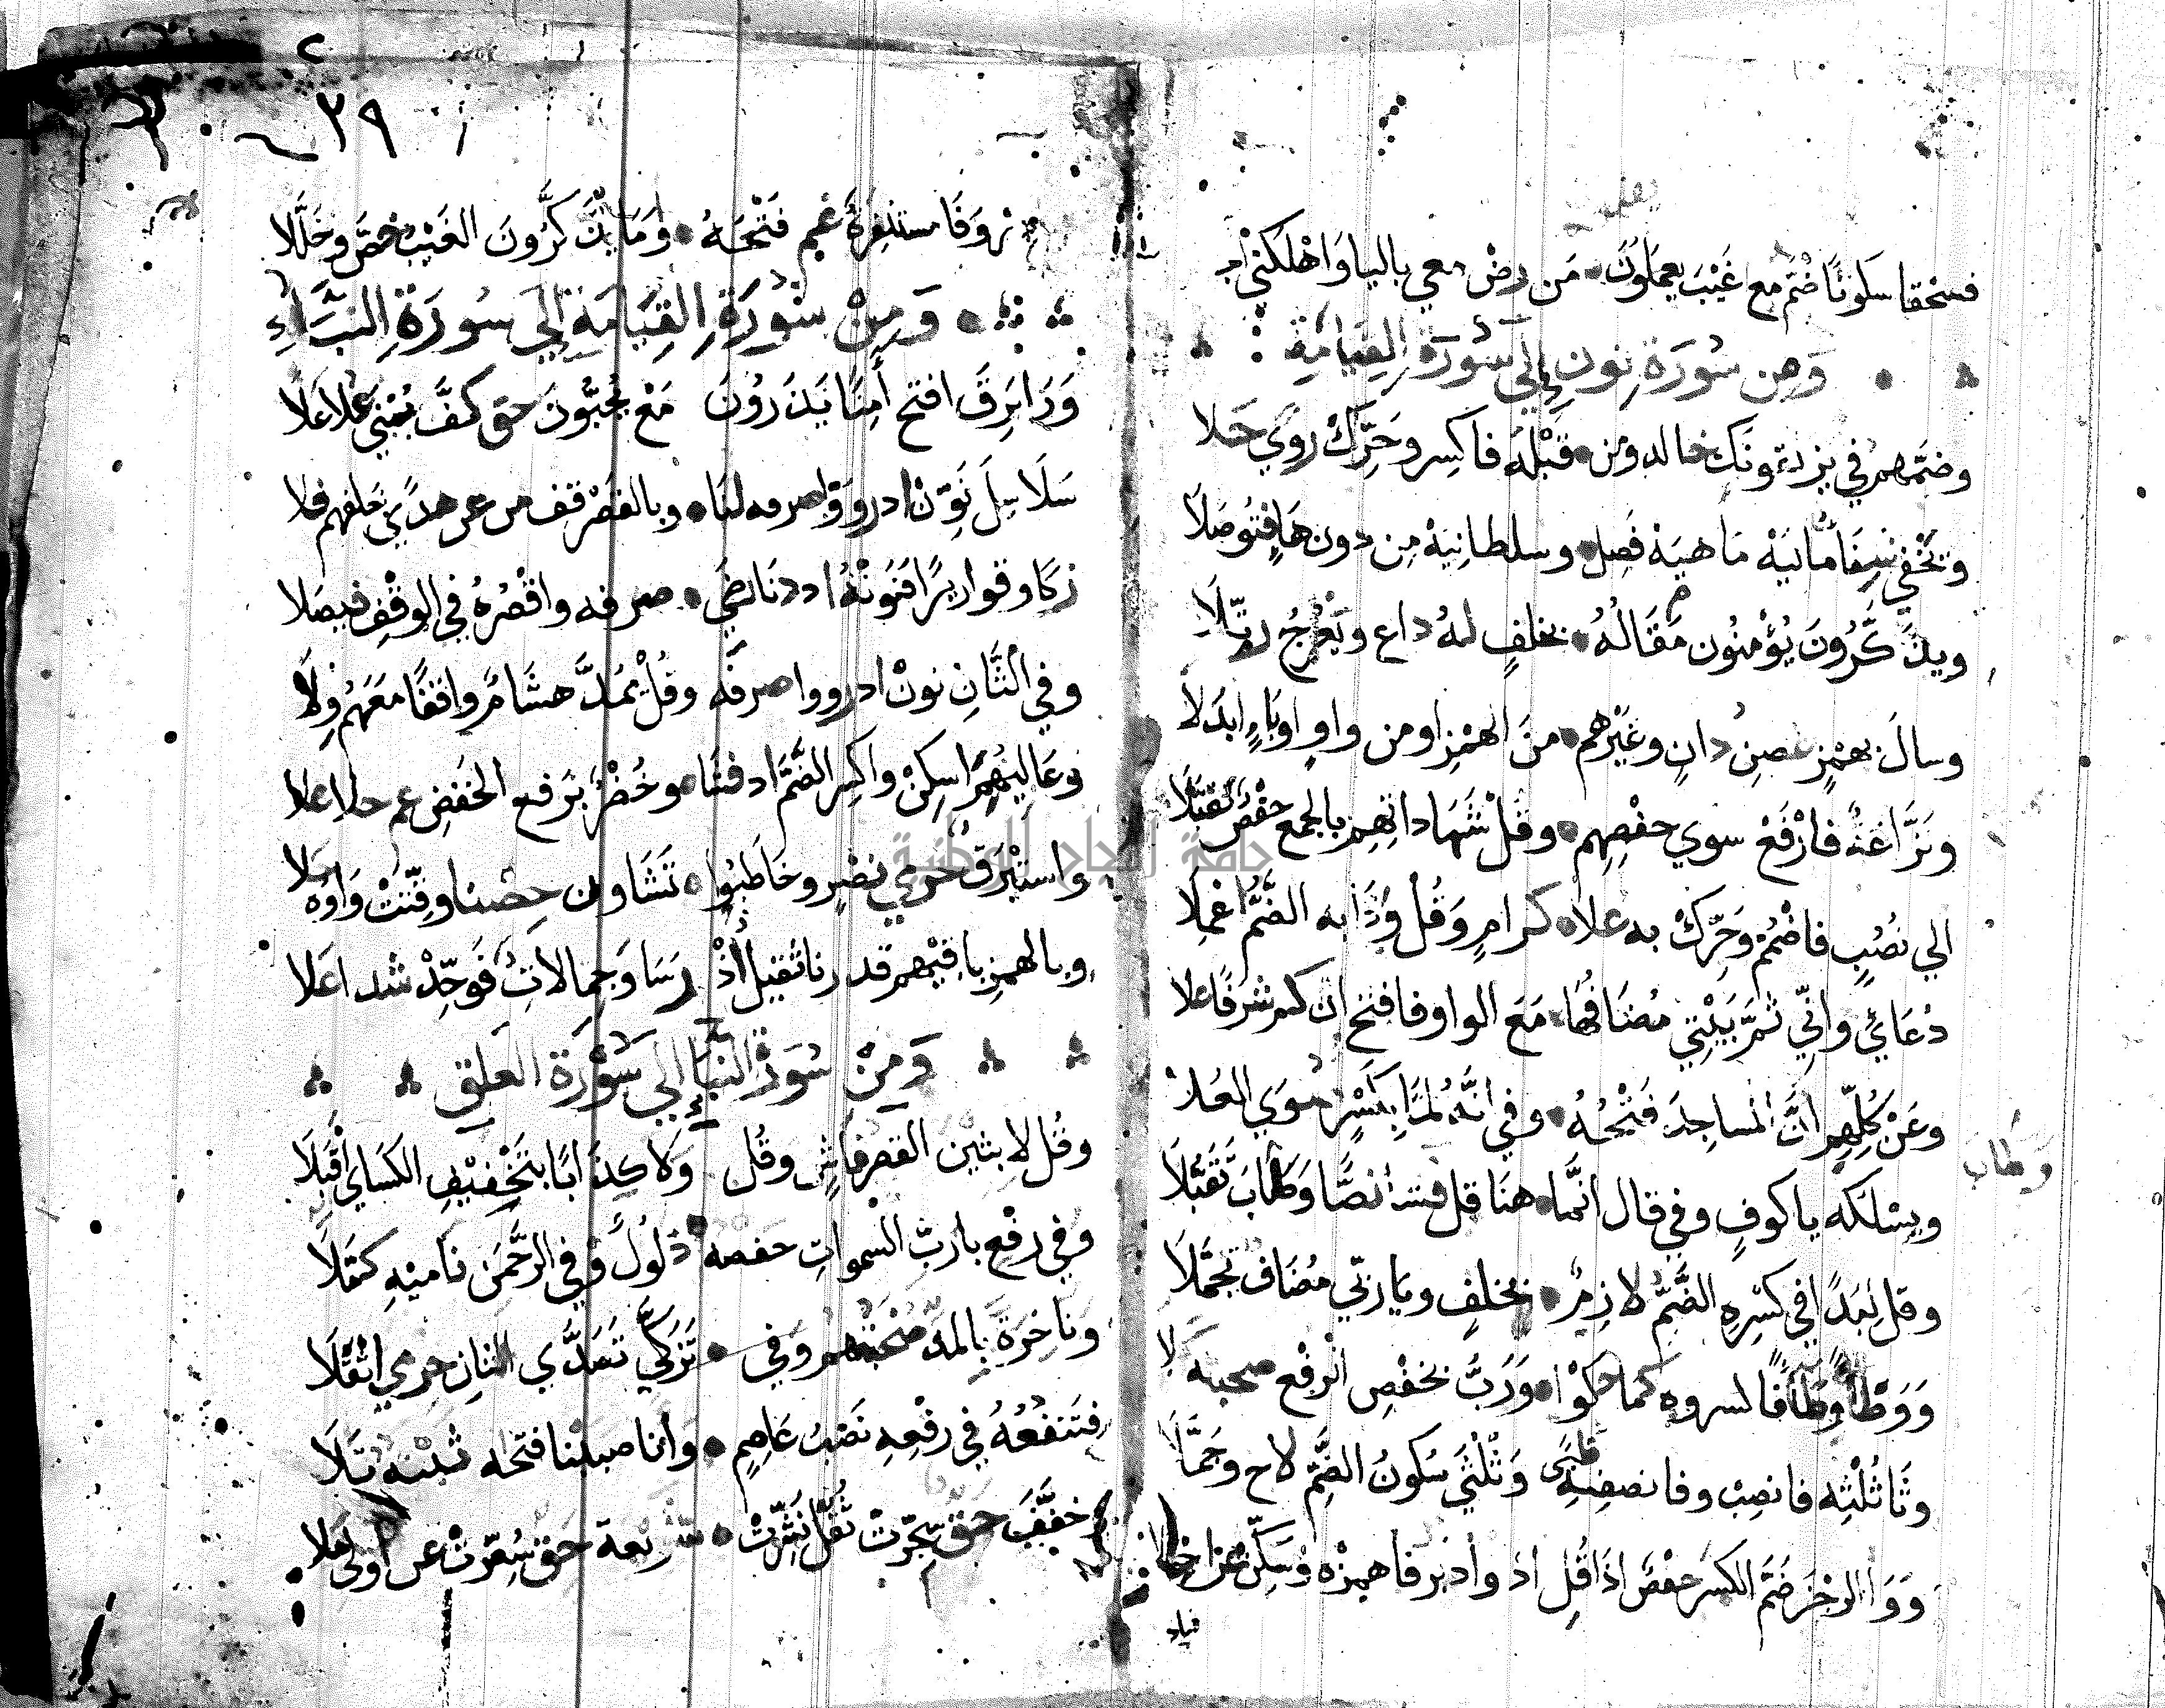 فسحقا سكونا ضم مع غيب يعملون من رض معي باليا واهلكني
ومن سورة نون إلي سورة القيامة
وضمهم في يزلقونك خالد ومن قبله فاكسر وحرك روي حلا
وتخفي شفا ماليه ماهيه فصل وسلطانيه من دون هاء فتوصلا
ويذكرون يؤمنون مقاله بخلف له داع ويعرج رتلا
وسال بهمز غصن دان وغيرهم من الهمز او من واو او ياء ابدلا
ونزاعة فارفع سوي حفصهم وقل شهاداتهم بالجمع حفص تقبلا
الي نصب فاضمم وحرك به علا كرام وقل ودا به الضم اعملا
دعائي واني ثم بيتي مضافها مع الواو فافتح ان كم شرفا علا
وعن كلهم ان المساجد فتحه وفي انه لما بكسر سوي العلا
ويسلكه يا كوف وفي قال انما هنا قل فشا نصا وطاب تقبلا
وطاب
وقل لبدا في كسره الضم لازم بخلف ويا ربي مضاف تجملا
ووطأ وطاء فاكسروه كما حكوا ورب بخفض الرفع صحبته كلا
وثا ثلثه فانصب وفا نصفه ظبى وثلثي سكون الضم لاح وجملا
ووا الرجز ضم الكسر حفص اذا قل اذ وادبر فاهمزه وسكن عن
فباد
٢٩
فا مستنفرة عم فتحه وما يذكرون الغيب خص وخللا
ومن سورة القيامة إلي سورة النباء
ورا برق افتح امنا يذرون مع يحبون حق كف يمني علا علا
سلاسل نون اذ رووا صرفه لنا وبالقصر قف من عن هدي خلفهم فلا
زكا وقواريرا فنونه اذ دنا رضي صرفه واقصره في الوقف فيصلا
وفي الثان نون اذ رووا صرفه وقل يمد هشام واقفا معهم ولا
وعاليهم اسكن واكسر الضم اذ فشا وخضر برفع الخفض عم حلا علا
واستبرق حرمي نصر وخاطبوا تشاون حصنا وقتت واوه حلا
وبالهمز باقيهم قدرنا ثقيل اذ رسا وجمالات فوحد شذا علا
ومن سورة النبأ إلي سورة العلق
وقل لابثين القصر فاش وقل ولا كذابا بتخفيف الكساي اقبلا
وفي رفع با رب السموات خفضه ذلول وفي الرحمن ناميه كملا
وناخرة بالمد صحبتهم وفي تزكي تصدي الثان حرمي اثقلا
فتنفعه في رفعه نصب عاصم وانا صببنا فتحه ثبته تلا
وخفف حق سجرت ثقل نشرت شريعة حق سعرت عن اولي ملا